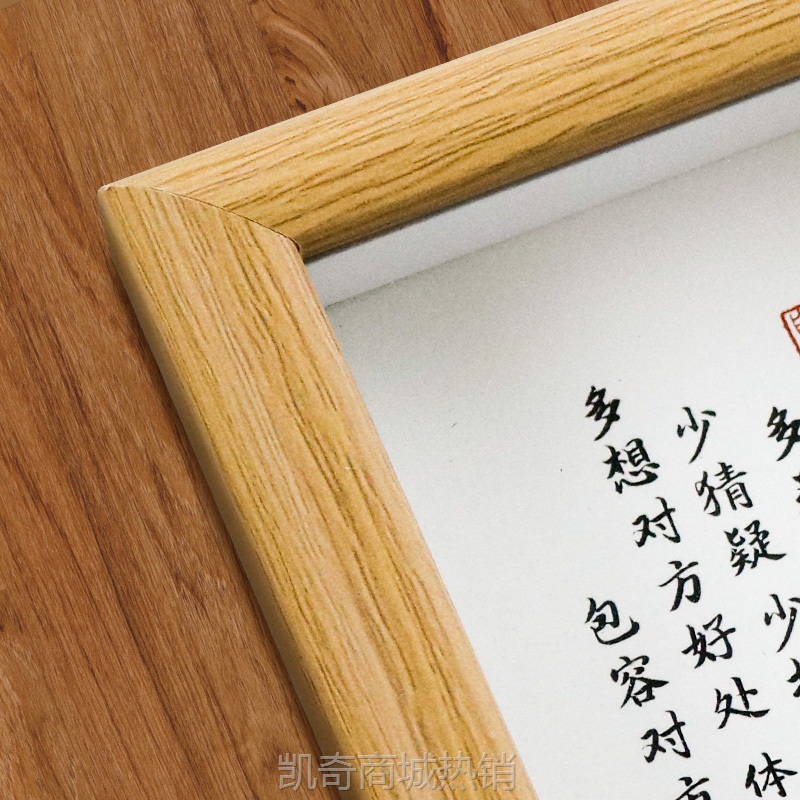 多
少猜疑 少
多想对方好处 体
包容对方
凯奇商城热销